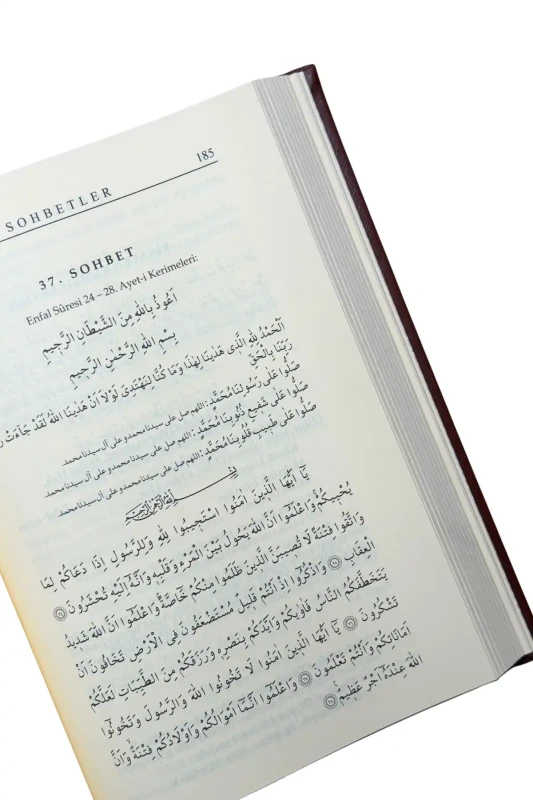 185
SOHBETLER
37. SOHBET
Enfal Sûresi 24 – 28. Ayet-i Kerimeleri:
اَعُوذُ بِاللّٰهِ مِنَ الشَّيْطَانِ الرَّجِيمِ
بِسْمِ اللّٰهِ الرَّحْمٰنِ الرَّحِيمِ
اَلْحَمْدُ لِلّٰهِ الَّذى هَدٰينَا لِهٰذَا وَمَا كُنَّا لِنَهْتَدِىَ لَوْلَا اَنْ هَدٰينَا اللّٰهُ لَقَدْ جَاءَتْ
رَبِّنَا بِالْحَقِّ
صَلُّوا عَلٰى رَسُولِنَا مُحَمَّدٍ: اللهم صل على سيدنا محمد وعلى آل سيدنا محمد
صَلُّوا عَلٰى شَفِيعِ ذُنُوبِنَا مُحَمَّدٍ: اللهم صل على سيدنا محمد وعلى آل سيدنا محمد
صَلُّوا عَلٰى طَبِيبِ قُلُوبِنَا مُحَمَّدٍ: اللهم صل على سيدنا محمد وعلى آل سيدنا محمد
بِسْمِ اللّٰهِ الرَّحْمٰنِ الرَّحِيمِ
يَٓا اَيُّهَا الَّذِينَ اٰمَنُوا اسْتَجِيبُوا لِلّٰهِ وَلِلرَّسُولِ اِذَا دَعَاكُمْ لِمَا
يُحْيِيكُمْ وَاعْلَمُٓوا اَنَّ اللّٰهَ يَحُولُ بَيْنَ الْمَرْءِ وَقَلْبِهِ وَاَنَّهُٓ اِلَيْهِ تُحْشَرُونَ ﴿٢٤﴾
وَاتَّقُوا فِتْنَةً لَا تُصِيبَنَّ الَّذِينَ ظَلَمُوا مِنْكُمْ خَٓاصَّةً وَاعْلَمُٓوا اَنَّ اللّٰهَ شَدِيدُ
الْعِقَابِ ﴿٢٥﴾ وَاذْكُرُٓوا اِذْ اَنْتُمْ قَلِيلٌ مُسْتَضْعَفُونَ فِى الْاَرْضِ تَخَافُونَ اَنْ
يَتَخَطَّفَكُمُ النَّاسُ فَاٰوٰيكُمْ وَاَيَّدَكُمْ بِنَصْرِهِ وَرَزَقَكُمْ مِنَ الطَّيِّبَاتِ لَعَلَّكُمْ
تَشْكُرُونَ ﴿٢٦﴾ يَٓا اَيُّهَا الَّذِينَ اٰمَنُوا لَا تَخُونُوا اللّٰهَ وَالرَّسُولَ وَتَخُونُٓوا
اَمَانَاتِكُمْ وَاَنْتُمْ تَعْلَمُونَ ﴿٢٧﴾ وَاعْلَمُٓوا اَنَّمَٓا اَمْوَالُكُمْ وَاَوْلَادُكُمْ فِتْنَةٌ وَاَنَّ
اللّٰهَ عِنْدَهُٓ اَجْرٌ عَظِيمٌ ﴿٢٨﴾